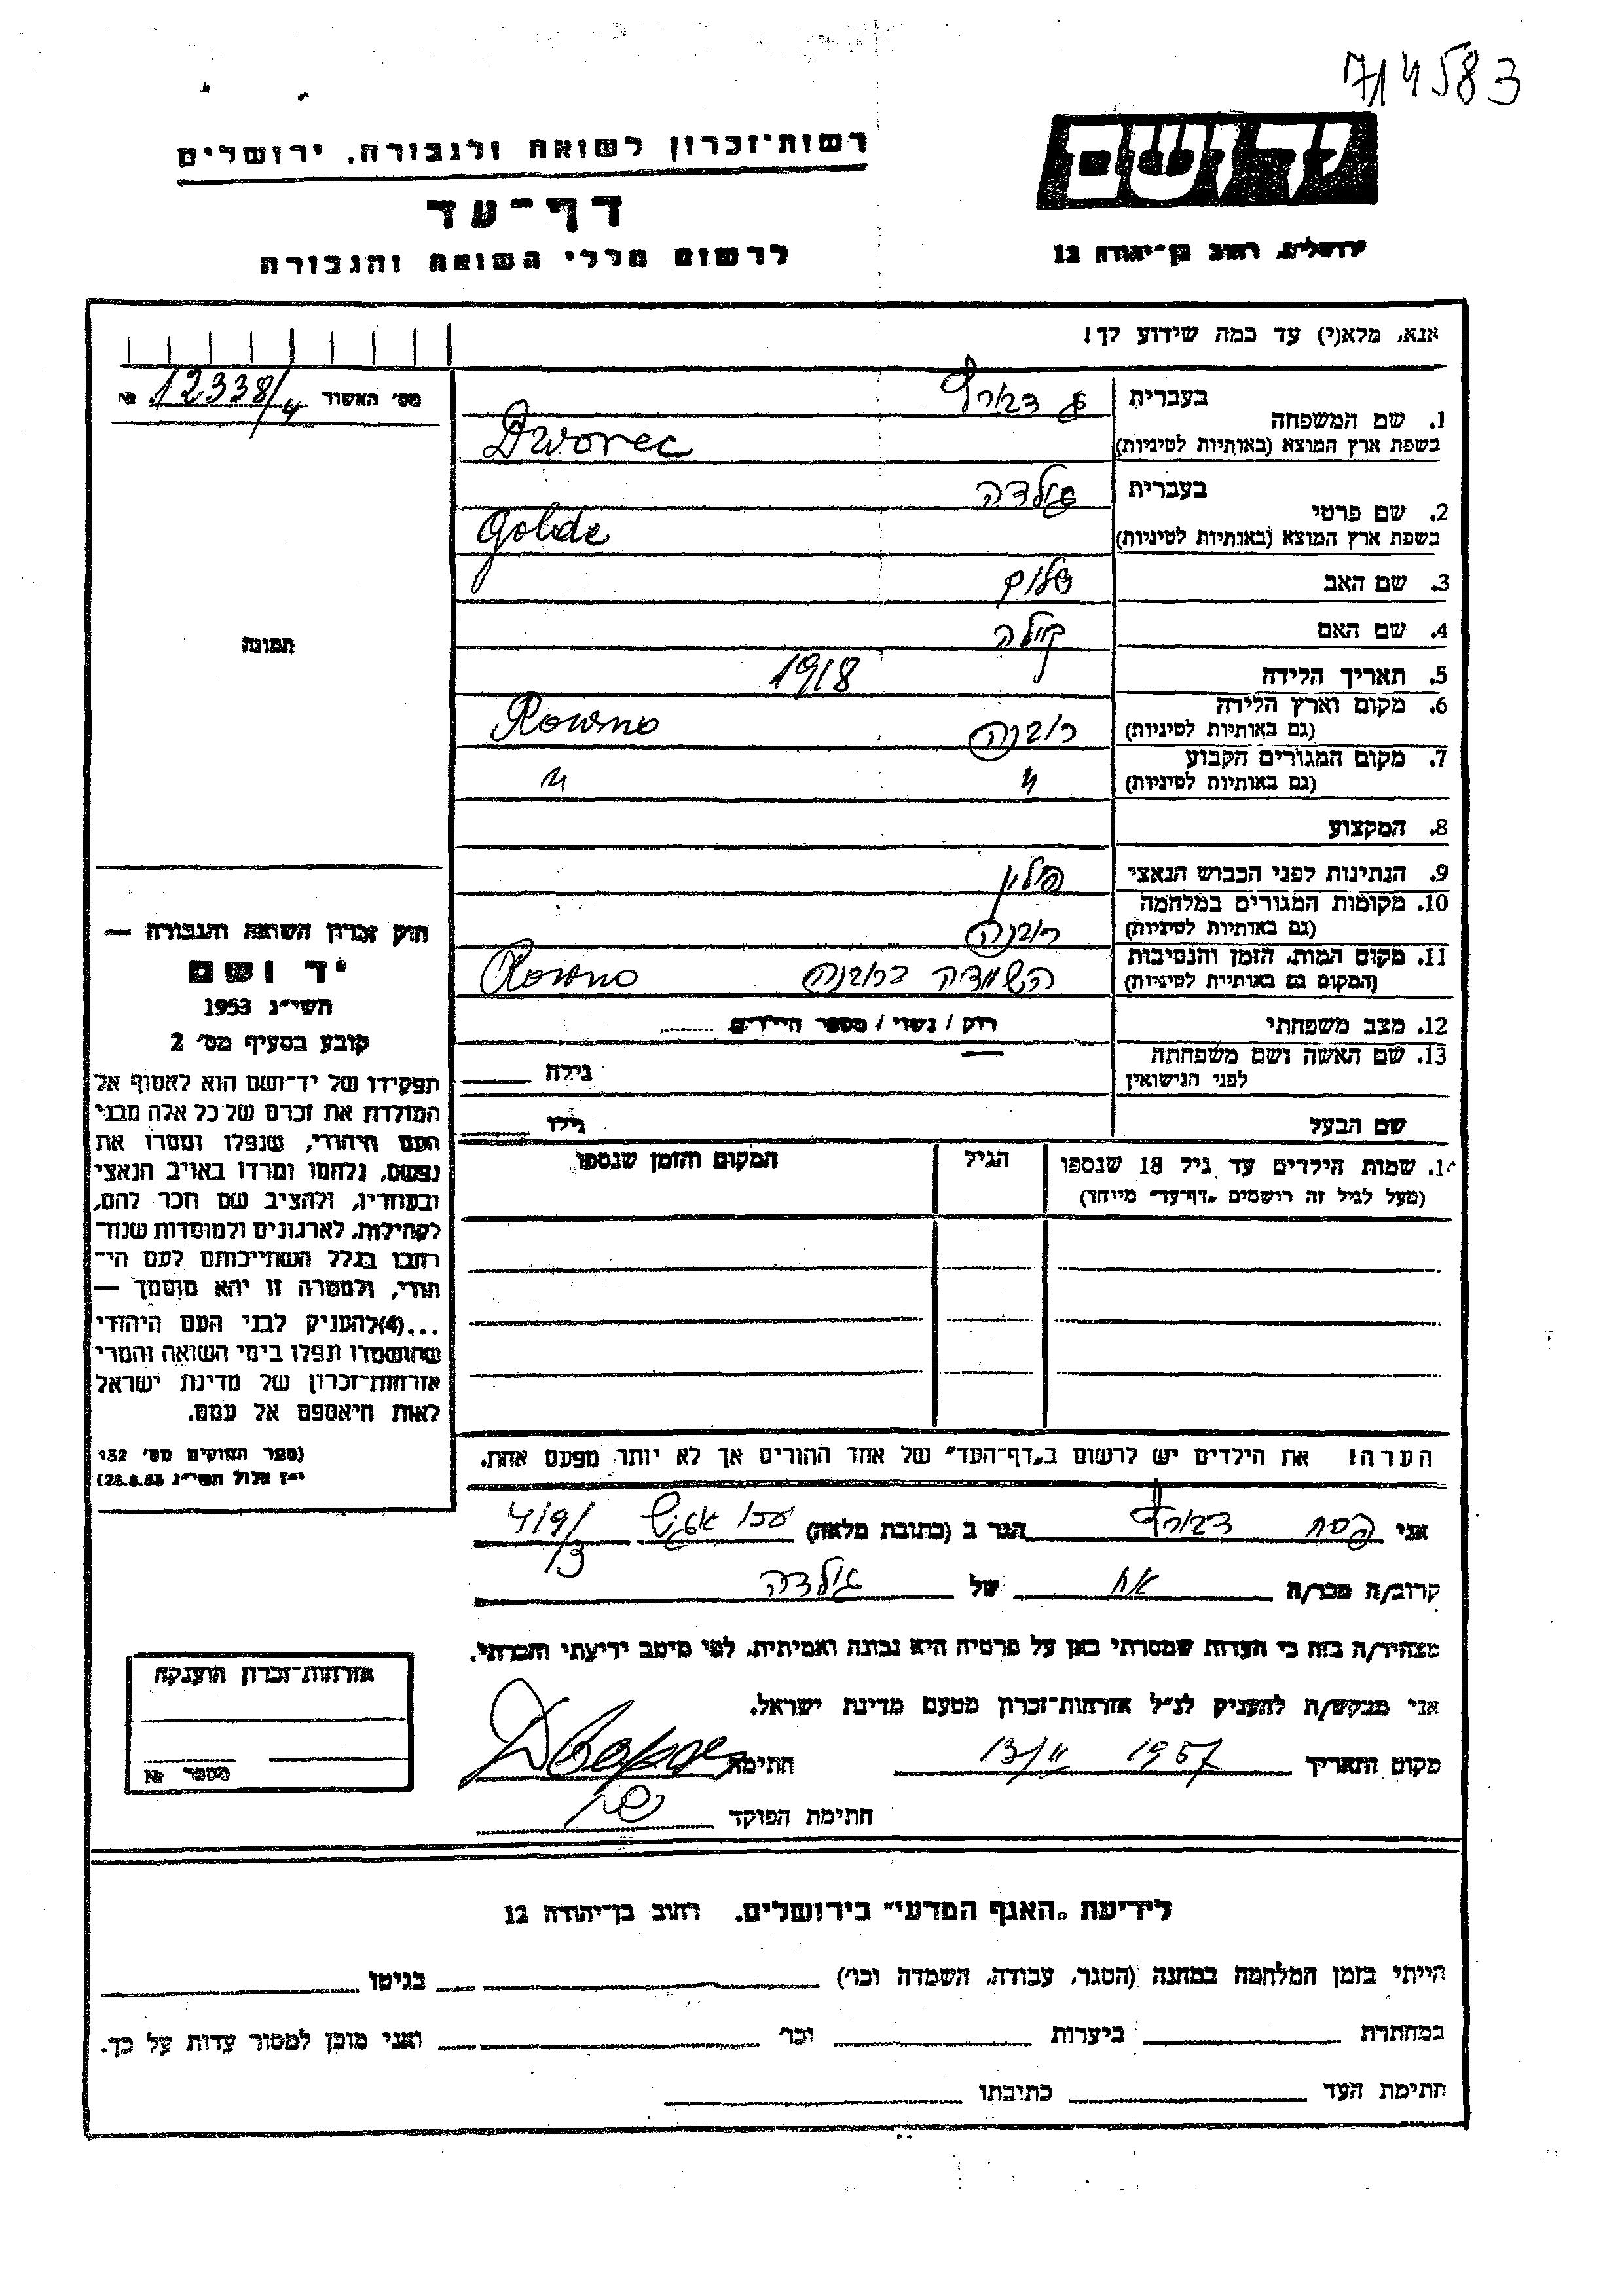 714583
יד ושם
ירושלים, רחוב בן־יהודה 12
רשות־זכרון לשואה ולגבורה, ירושלים
דף־עד
לרשום חללי השואה והגבורה
אנא, מלא(י) עד כמה שידוע לך!
מס׳ האשור 12338/4 №
תמונה
1. שם המשפחה
בעברית
דבורץ
בשפת ארץ המוצא (באותיות לטיניות)
Dworec
2. שם פרטי
בעברית
גולדה
בשפת ארץ המוצא (באותיות לטיניות)
Golde
3. שם האב שלום
4. שם האם קיילה
5. תאריך הלידה 1918
6. מקום וארץ הלידה
(גם באותיות לטיניות)
רובנה Rowno
7. מקום המגורים הקבוע
(גם באותיות לטיניות)
״ ״
8. המקצוע
9. הנתינות לפני הכבוש הנאצי פולין
10. מקומות המגורים במלחמה
(גם באותיות לטיניות)
רובנה
11. מקום המות, הזמן והנסיבות
(המקום גם באותיות לטיניות)
השמדה ברובנה Rowno
12. מצב משפחתי רוק / נשוי / מספר הילדים
13. שם האשה ושם משפחתה
לפני הנישואין
גילה
שם הבעל גילו
14. שמות הילדים עד גיל 18 שנספו
(מעל לגיל זה רושמים „דף־עד״ מיוחד)
הגיל
המקום והזמן שנספו
חוק זכרון השואה והגבורה —
יד ושם
תשי״ג 1953
קובע בסעיף מס׳ 2
תפקידו של יד־ושם הוא לאסוף אל
המולדת את זכרם של כל אלה מבני
העם היהודי, שנפלו ומסרו את
נפשם, נלחמו ומרדו באויב הנאצי
ובעוזריו, ולהציב שם וזכר להם,
לקהילות, לארגונים ולמוסדות שנח־
רבו בגלל השתייכותם לעם הי־
הודי, ולמטרה זו יהא מוסמך —
...(4)להעניק לבני העם היהודי
שהושמדו ונפלו בימי השואה והמרי
אזרחות־זכרון של מדינת ישראל
לאות היאספם אל עמם.
(ספר החוקים מס׳ 132
י״ז אלול תשי״ג 28.8.53)
הערה! את הילדים יש לרשום ב„דף־העד״ של אחד ההורים אך לא יותר מפעם אחת.
אני פסח דבורץ הגר ב (כתובת מלאה)
קרוב/ה מכר/ה אח של גולדה
מצהיר/ה בזה כי העדות שמסרתי כאן על פרטיה היא נכונה ואמיתית, לפי מיטב ידיעתי והכרתי.
אני מבקש/ת להעניק לנ״ל אזרחות־זכרון מטעם מדינת ישראל.
מקום ותאריך 1957 חתימה
חתימת הפוקד
אזרחות־זכרון הוענקה
מספר №
לידיעת „האגף המדעי״ בירושלים. רחוב בן־יהודה 12
הייתי בזמן המלחמה במחנה (הסגר, עבודה, השמדה וכו׳) בגיטו
במחתרת ביערות וכו׳ ואני מוכן למסור עדות על כך.
חתימת העד כתובתו